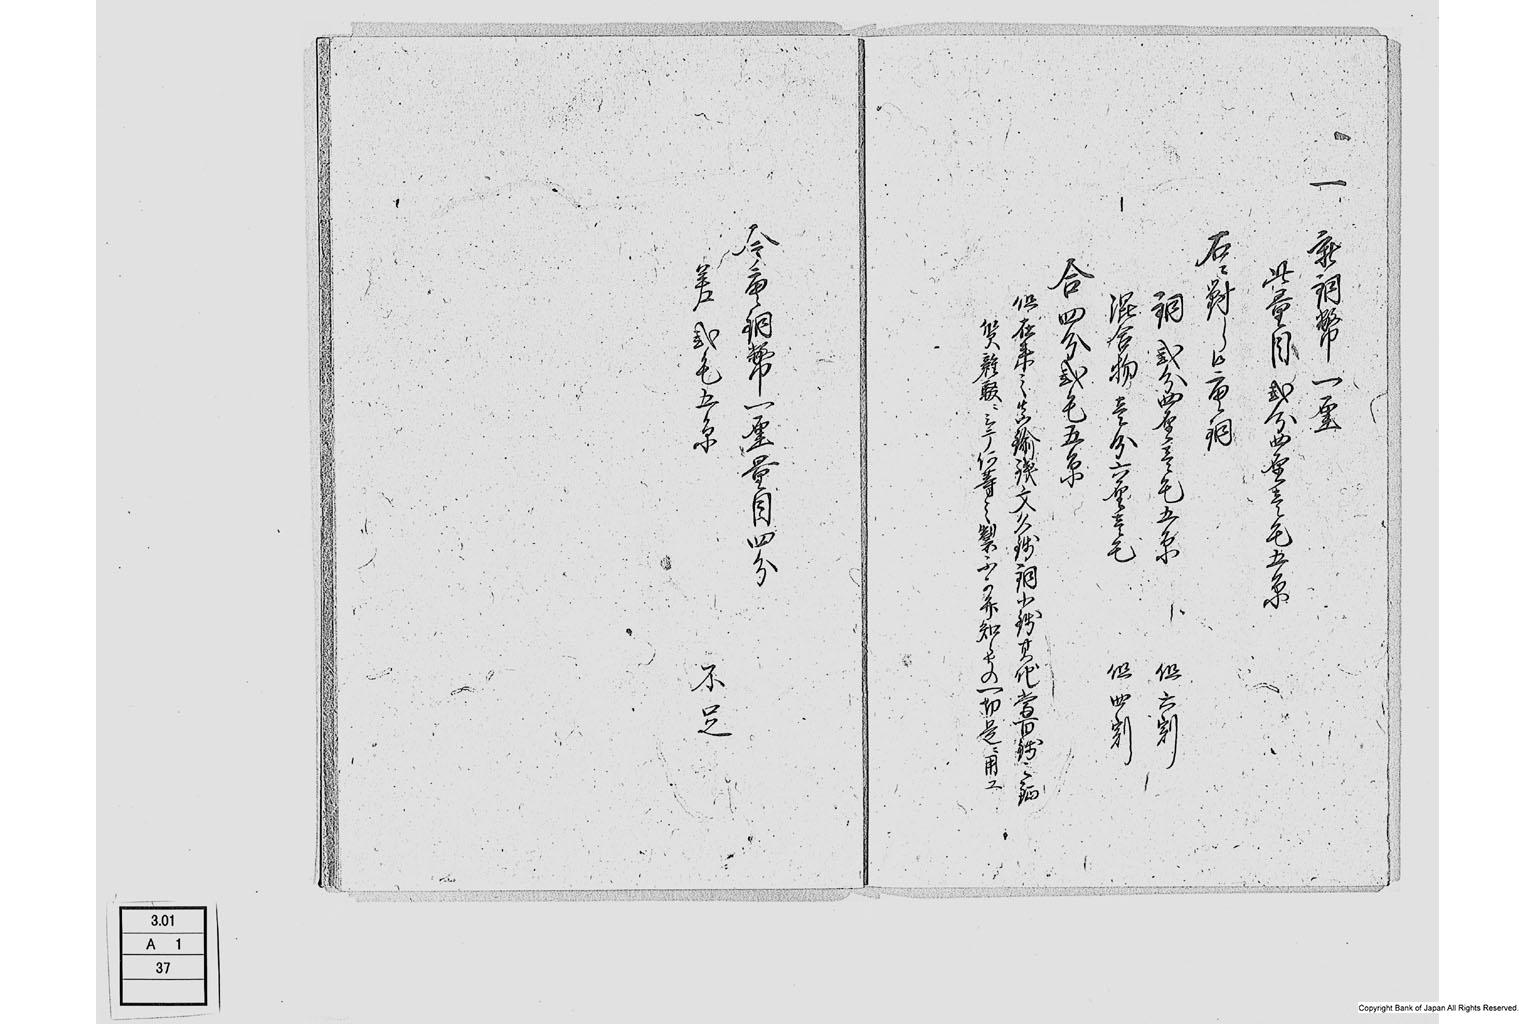 一 新銅幣一厘
此量目 弐分四厘壱毛五糸
右ニ對シ
銅 弐分四厘壱毛五糸 但六割
混合物 壱分六厘壱毛 但四割
合四分弐毛五糸
但在来之真鍮銭文久銭銅小銭其他當百銭之
贋雑駁ニシテ 等之製 知 一切是ニ用
今 銅幣一厘量目四分
差 弐毛五糸 不足
3.01
A 1
37
Copyright Bank of Japan All Rights Reserved.